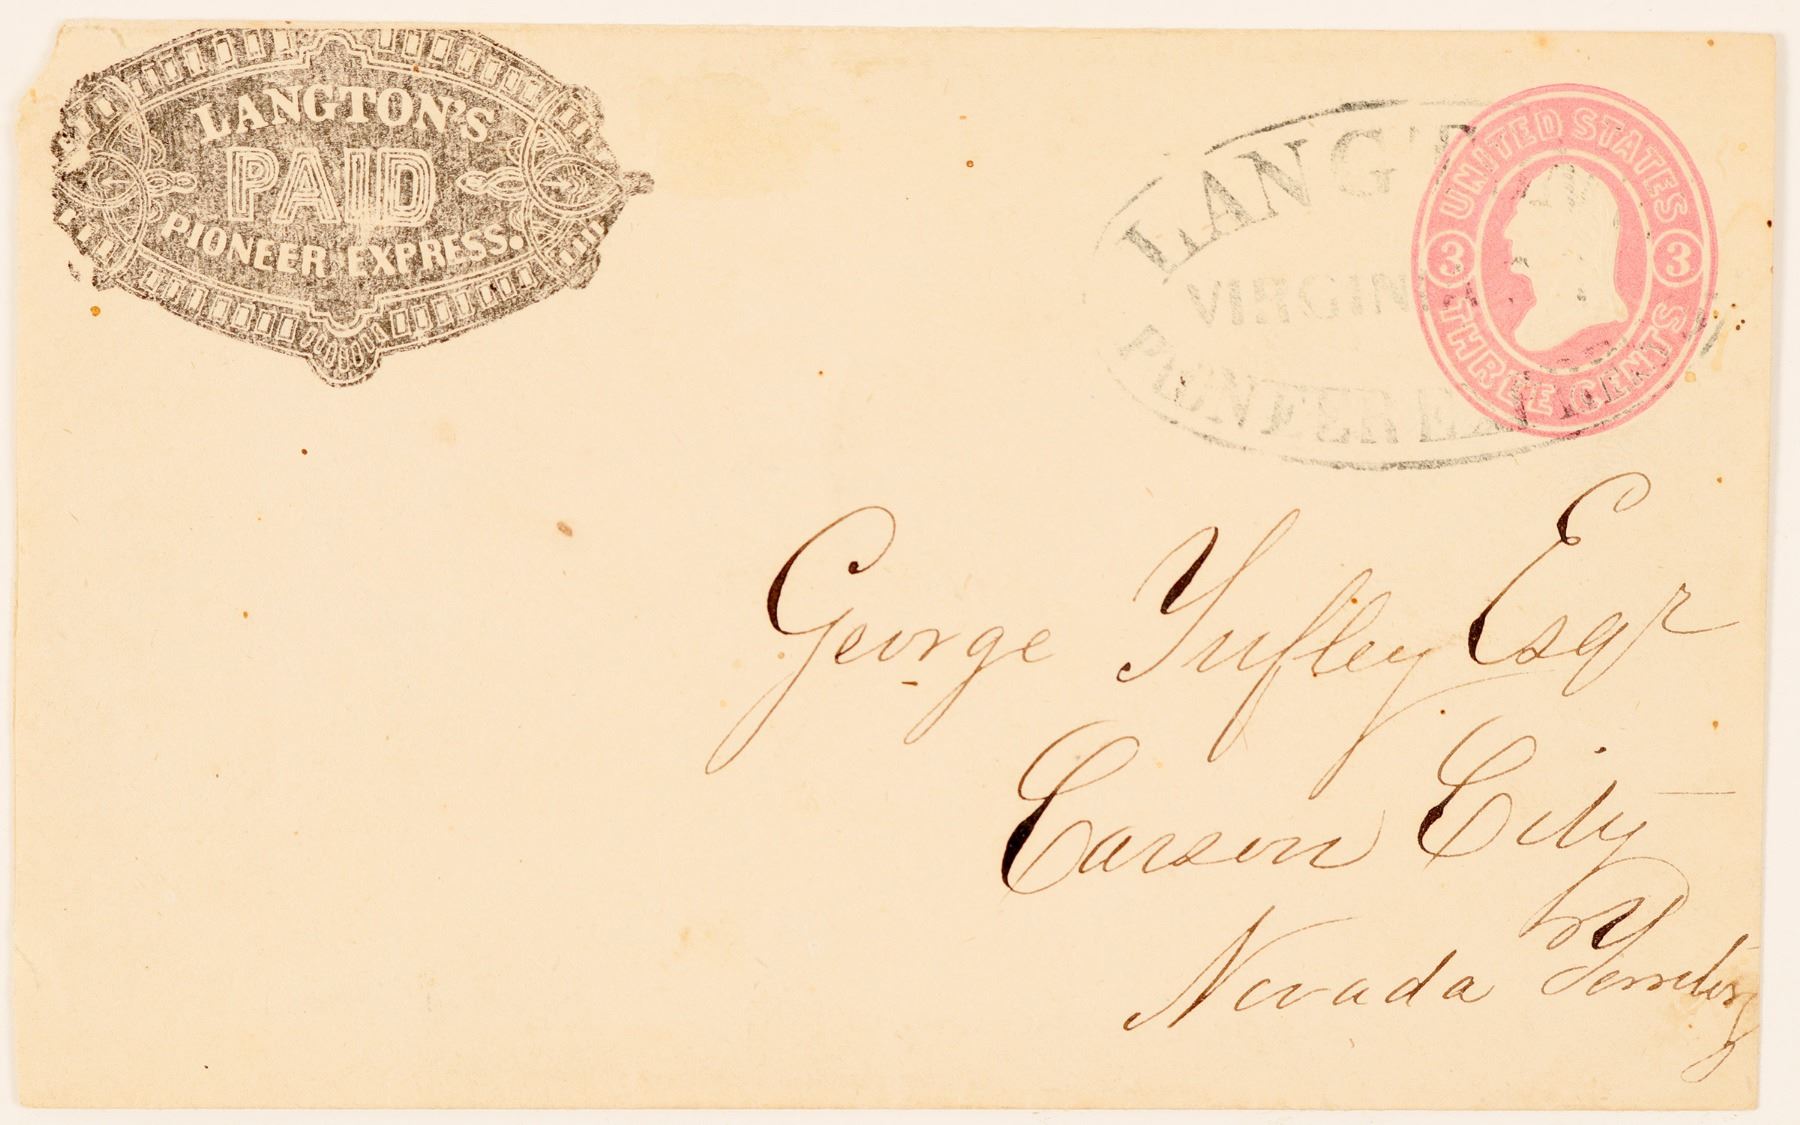 LANGTON'S
PAID
PIONEER EXPRESS.
LANGT
VIRGIN
PIONEER EX
UNITED STATES
3 3
THREE CENTS
George Tufley Esqr
Carson City
Nevada Territory